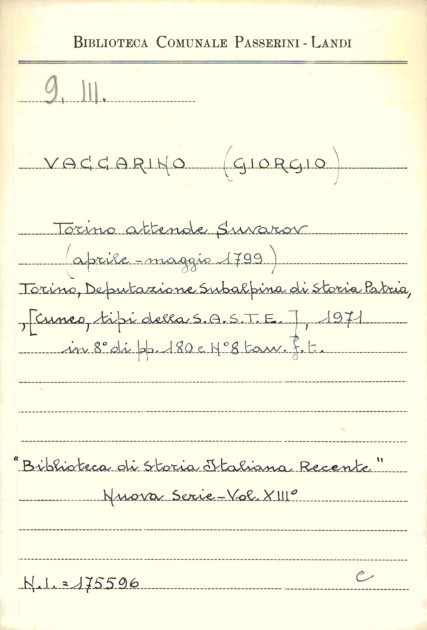 BIBLIOTECA COMUNALE PASSERINI - LANDI
9. III.
VACCARINO (GIORGIO)
Torino attende Suvarov
(aprile - maggio 1799)
Torino, Deputazione Subalpina di Storia Patria,
, [Cuneo, tipi della S.A.S.T.E.], 1971
in 8° di pp. 180 e N° 8 tavv. f.t.
"Biblioteca di Storia Italiana Recente"
Nuova Serie - Vol. XIII°
N.I. = 175596
c